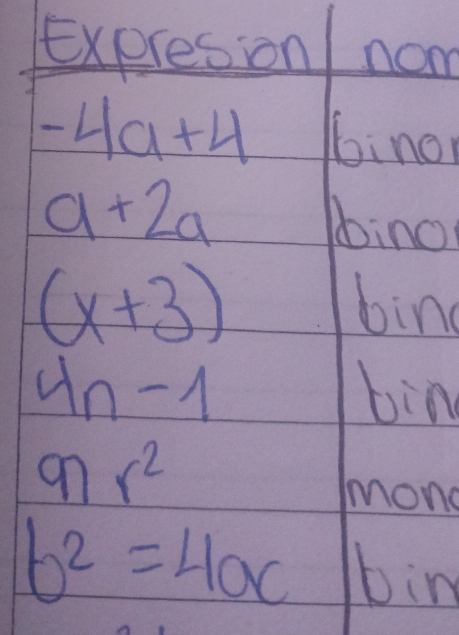 Expresion nom
-4a+4 binor
a+2a bino
(x+3) bin
4n-1 bin
r²
b²=4ac bin